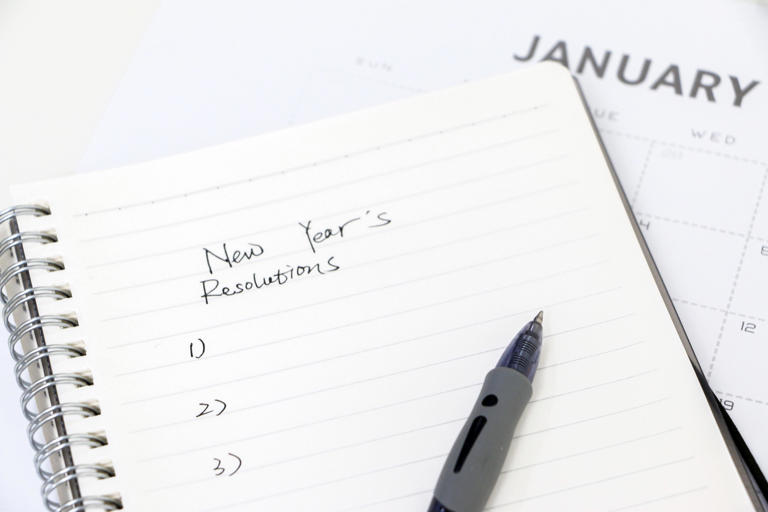 JANUARY
SUN
WED
New Year's
Resolutions
1)
2)
3)
4
12
19